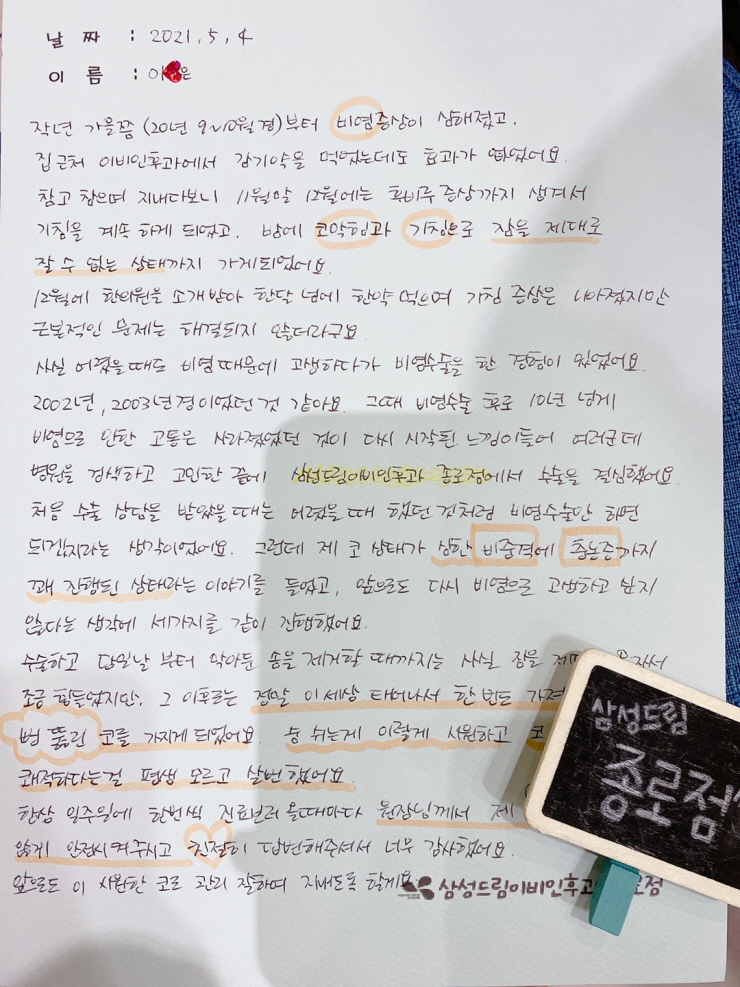 날 짜 : 2021. 5. 4
이 름 : 이 은
작년 가을쯤 (20년 9~10월경)부터 비염증상이 심해졌고.
집 근처 이비인후과에서 감기약을 먹었는데도 효과가 없었어요.
참고 참으며 지내다보니 11월말 12월에는 후비루 증상까지 생겨서
기침을 계속 하게 되었고. 밤에 코막힘과 기침으로 잠을 제대로
잘 수 없는 상태까지 가게되었어요.
12월에 한의원을 소개받아 한달 넘에 한약 먹으며 기침 증상은 나아졌지만
근본적인 문제는 해결되지 않더라구요.
사실 어렸을때도 비염때문에 고생하다가 비염수술을 한 경험이 있었어요.
2002년, 2003년경이었던 것 같아요. 그때 비염수술 후로 10년 넘게
비염으로 인한 고통은 사라졌었던 것이 다시 시작된 느낌이들어 여러군데
병원을 검색하고 고민한 끝에 삼성드림이비인후과 종로점에서 수술을 결심했어요.
처음 수술 상담을 받았을때는 어렸을때 했던 것처럼 비염수술만 하면
되겠지라는 생각이었어요. 그런데 제 코 상태가 심한 비중격에 축농증까지
꽤 진행된 상태라는 이야기를 들었고, 앞으로도 다시 비염으로 고생하고 싶지
않다는 생각에 세가지를 같이 진행했어요.
수술하고 당일날 부터 막아둔 솜을 제거할 때까지는 사실 잠을
조금 힘들었지만. 그 이후로는 정말 이세상 태어나서 한 번도
뻥 뚫린 코를 가지게 되었어요. 숨 쉬는게 이렇게 시원하고
쾌적하다는걸 평생 모르고 살뻔 했어요.
항상 일주일에 한번씩 진료보러 올때마다 원장님께서 제
않게 안정시켜주시고 친절히 답변해주셔서 너무 감사했어요.
앞으로도 이 시원한 코로 관리 잘하며 지내도록 할게요.
삼성드림이비인후과 점
삼성드림
종로점